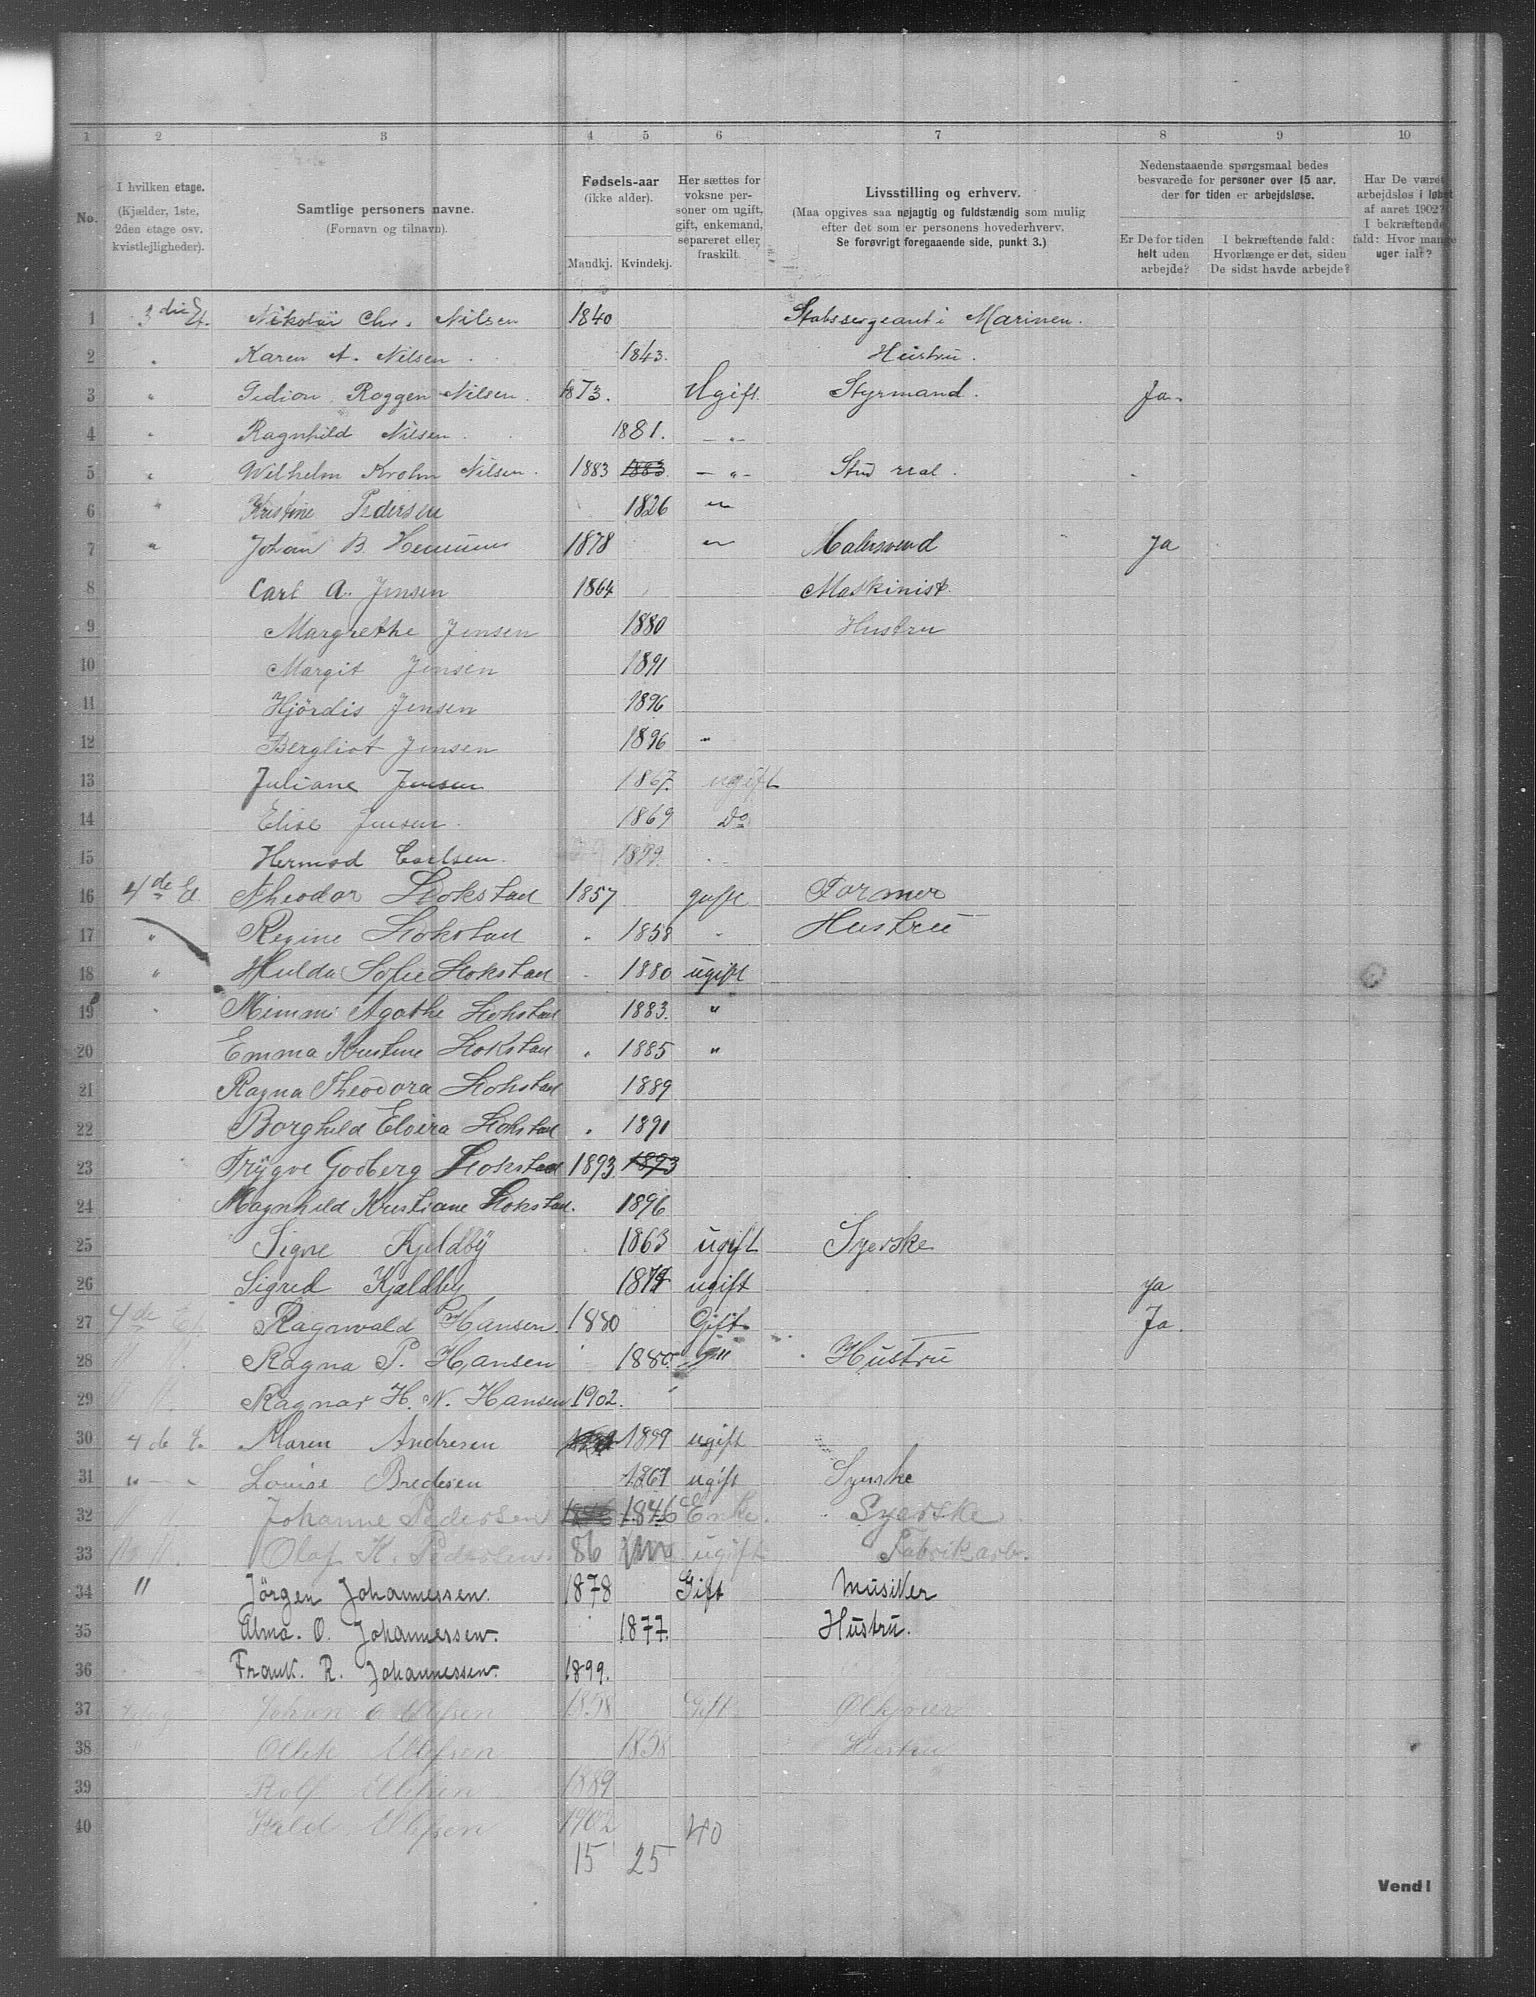 1 2 3 4 5 6 7 8 9 10
No.
I hvilken etage.
(Kjælder, 1ste,
2den etage osv.
kvistlejligheder).
Samtlige personers navne.
(Fornavn og tilnavn).
Fødsels-aar
(ikke alder).
Mandkj. Kvindekj.
Her sættes for
voksne per-
soner om ugift,
gift, enkemand,
separeret eller
fraskilt.
Livsstilling og erhverv.
(Maa opgives saa nøjagtig og fuldstændig som mulig
efter det som er personens hovederhverv.
Se forøvrigt foregaaende side, punkt 3.)
Nedenstaaende spørgsmaal bedes
besvarede for personer over 15 aar,
der for tiden er arbejdsløse.
Er De for tiden
helt uden
arbejde?
I bekræftende fald:
Hvorlænge er det, siden
De sidst havde arbejde?
Har De været
arbejdsløs i løbet
af aaret 1902?
I bekræftende
fald: Hvor mange
uger ialt?
1 3die Et. Nikolai Chr. Nilsen 1840 Statssergeant i Marinen.
2 " Karen A. Nilsen 1843. Hustru.
3 " Gedion Roggen Nilsen. 1873. Ugift Styrmand. Ja.
4 " Ragnhild Nilsen. 1881. — " —
5 " Wilhelm Krohn Nilsen. 1883 1883 — " — Stud real.
6 " Kristine Pedersen 1826 "
7 " Johan B. 1878 " Malersvend Ja
8 Carl A. Jensen 1864 Maskinist
9 Margrethe Jensen 1880 Hustru
10 Margit Jensen 1891
11 Hjördis Jensen 1896
12 Bergliot Jensen 1896 "
13 Juliane Jensen 1867. ugift
14 Elise Jensen 1869 Do
15 Hermod Carlsen. 1899.
16 4de Et. Theodor Stokstad 1857 gift Former
17 " Regine Stokstad " 1858 " Hustru
18 " Hulda Sofie Stokstad 1880 ugift
19 " Mimmi Agathe Stokstad 1883. "
20 Emma Kristine Stokstad " 1885 "
21 Ragna Theodora Stokstad 1889
22 Borghild Elvira Stokstad " 1891
23 Trygve Godberg Stokstad 1893 1893
24 Magnhild Kristiane Stokstad. 1896
25 Signe Kjeldby 1863 ugift Syerske
26 Sigred Kjældby ugift ja
27 4de Et. Ragnvald Hansen. 1880 Gift. Ja.
28 " " Ragna P. Hansen 1880. " Hustru
29 " " Ragnar H. N. Hansen 1902.
30 4 de E. Maren Andresen 1899 ugift
31 " — " Louise Bredesen 1867 ugift Syerske
32 " " Johanne Pedersen 1846 1846 Enke. Syerske
33 " " Olaf K. Pedersen. 86 ugift Fabrikarb.
34 " Jörgen Johannessen. 1878 Gift Musiker
35 Alma. O. Johannessen. 1877. Hustru.
36 Frank. R. Johannessen. 1899.
37 Johan 1858 Gift
38 1858 Hustru
39 Rolf 1889
40 1902 40
15 25
Vend!